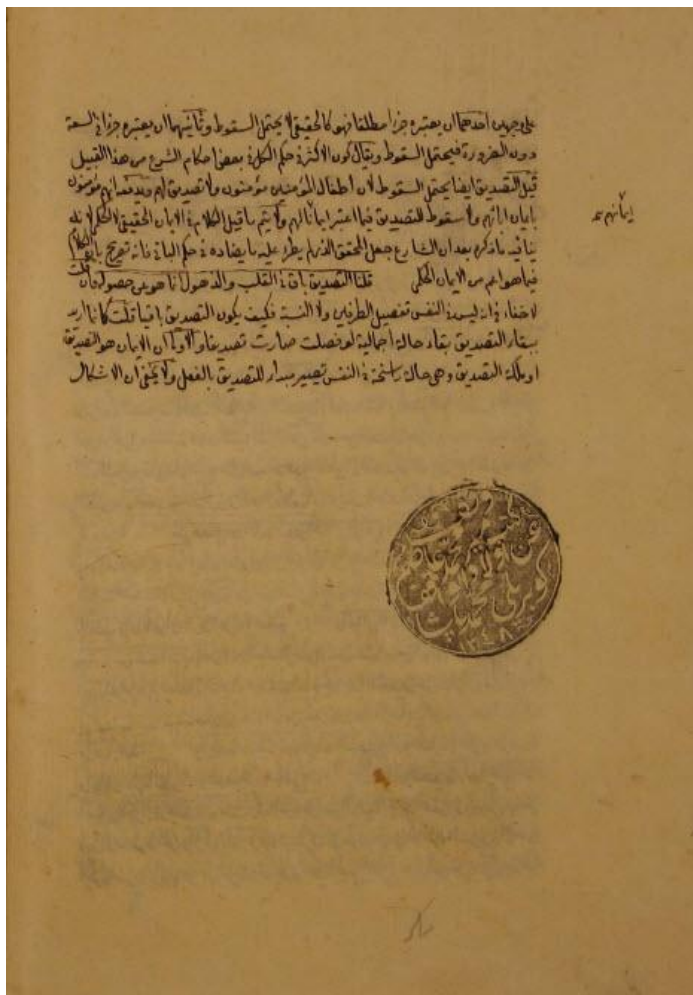 على وجهين احدهما ان يعتبره جزءا مطلقا فهو كالحقيقى لا يحتمل السقوط وثانيهما ان يعتبره جزءا فى السعة
دون الضرورة فيحتمل السقوط ويقال كون الاكثر فى حكم الكل فى بعض احكام الشرع من هذا القبيل
قيل التصديق ايضا يحتمل السقوط لان اطفال المؤمنين مؤمنون ولا تصديق لهم ويدفعه انهم مؤمنون
بايمان ابائهم ولا سقوط للتصديق فيما اعتبر ايمانا لهم ولا يتم ما قيل الكلام فى الايمان الحقيقى لا الحكمى لانه
ينافيه ما ذكره بعد ان الشارع جعل المحقق الذى لم يطرأ عليه ما يضاده فى حكم الباقى فانه تصريح بان الكلام
فيما هو اعم من الايمان الحكمى قلنا التصديق باق فى القلب والذهول انما هو عن حصوله فان قلت
لا خفاء فى انه ليس فى النفس تفصيل الطرفين ولا النسبة فكيف يكون التصديق باقيا قلت كانه اريد
ببقاء التصديق بقاء حالة اجمالية لو فصلت صارت تصديقا والاولى ان الايمان هو التصديق
او ملكة التصديق وهى حالة راسخة فى النفس تصير مبدأ للتصديق بالفعل ولا يخفى ان الاشكال
ايمانهم